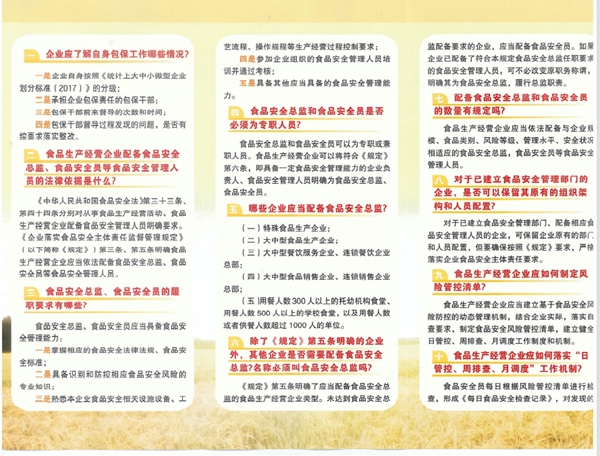 一 企业应了解自身包保工作哪些情况?
一是企业自身按照《统计上大中小微型企业
划分标准（2017）》的分级；
二是承担企业包保责任的包保干部；
三是包保干部前来督导的次数和时间；
四是包保干部督导过程发现的问题，是否有
按要求落实整改。
二 食品生产经营企业配备食品安全
总监、食品安全员等食品安全管理人
员的法律依据是什么?
《中华人民共和国食品安全法》第三十三条、
第四十四条分别对从事食品生产经营活动、食品
生产经营企业配备食品安全管理人员明确要求。
《企业落实食品安全主体责任监督管理规定》
（以下简称《规定》）第三条、第五条明确食品
生产经营企业应当依法配备食品安全总监、食品
安全员等食品安全管理人员。
三 食品安全总监、食品安全员的履
职要求有哪些?
食品安全总监、食品安全员应当具备食品安
全管理能力：
一是掌握相应的食品安全法律法规、食品安
全标准；
二是具备识别和防控相应食品安全风险的
专业知识；
三是熟悉本企业食品安全相关设施设备、工
艺流程、操作规程等生产经营过程控制要求；
四是参加企业组织的食品安全管理人员培
训并通过考核；
五是具备其他应当具备的食品安全管理能
力。
四 食品安全总监和食品安全员是否
必须为专职人员?
食品安全总监和食品安全员可以为专职或兼
职人员。食品生产经营企业可以将符合《规定》
第六条，即具备一定食品安全管理能力的企业负
责人、食品安全管理人员明确为食品安全总监、
食品安全员。
五 哪些企业应当配备食品安全总监?
（一）特殊食品生产企业；
（二）大中型食品生产企业；
（三）大中型餐饮服务企业、连锁餐饮企业
总部；
（四）大中型食品销售企业、连锁销售企业
总部；
（五）用餐人数300人以上的托幼机构食堂、
用餐人数500人以上的学校食堂，以及用餐人数
或者供餐人数超过1000人的单位。
六 除了《规定》第五条明确的企业
外，其他企业是否需要配备食品安全
总监?名称必须叫食品安全总监吗?
《规定》第五条明确了应当配备食品安全总
监的食品生产经营企业类型。未达到食品安全总
监配备要求的企业，应当配备食品安全员。如果
企业已配备了符合本规定食品安全总监任职要求
的食品安全管理人员，可不必改变原职务称谓，
明确其为食品安全总监，履行总监职责。
七 配备食品安全总监和食品安全员
的数量有规定吗?
食品生产经营企业应当依法配备与企业规
模、食品类别、风险等级、管理水平、安全状况
相适应的食品安全总监、食品安全员等食品安全
管理人员。
八 对于已建立食品安全管理部门的
企业，是否可以保留其原有的组织架
构和人员配置?
对于已建立食品安全管理部门、配备相应食品
安全管理人员的企业，可保留企业原有的部门
和人员配置，但要确保按照《规定》要求，严格
落实企业食品安全主体责任要求。
九 食品生产经营企业应如何制定风
险管控清单?
食品生产经营企业应当建立基于食品安全风
险防控的动态管理机制，结合企业实际，落实自
查要求，制定食品安全风险管控清单，建立健全
日管控、周排查、月调度工作制度和机制。
十 食品生产经营企业应如何落实“日
管控、周排查、月调度”工作机制?
食品安全员每日根据风险管控清单进行检
查，形成《每日食品安全检查记录》，对发现的